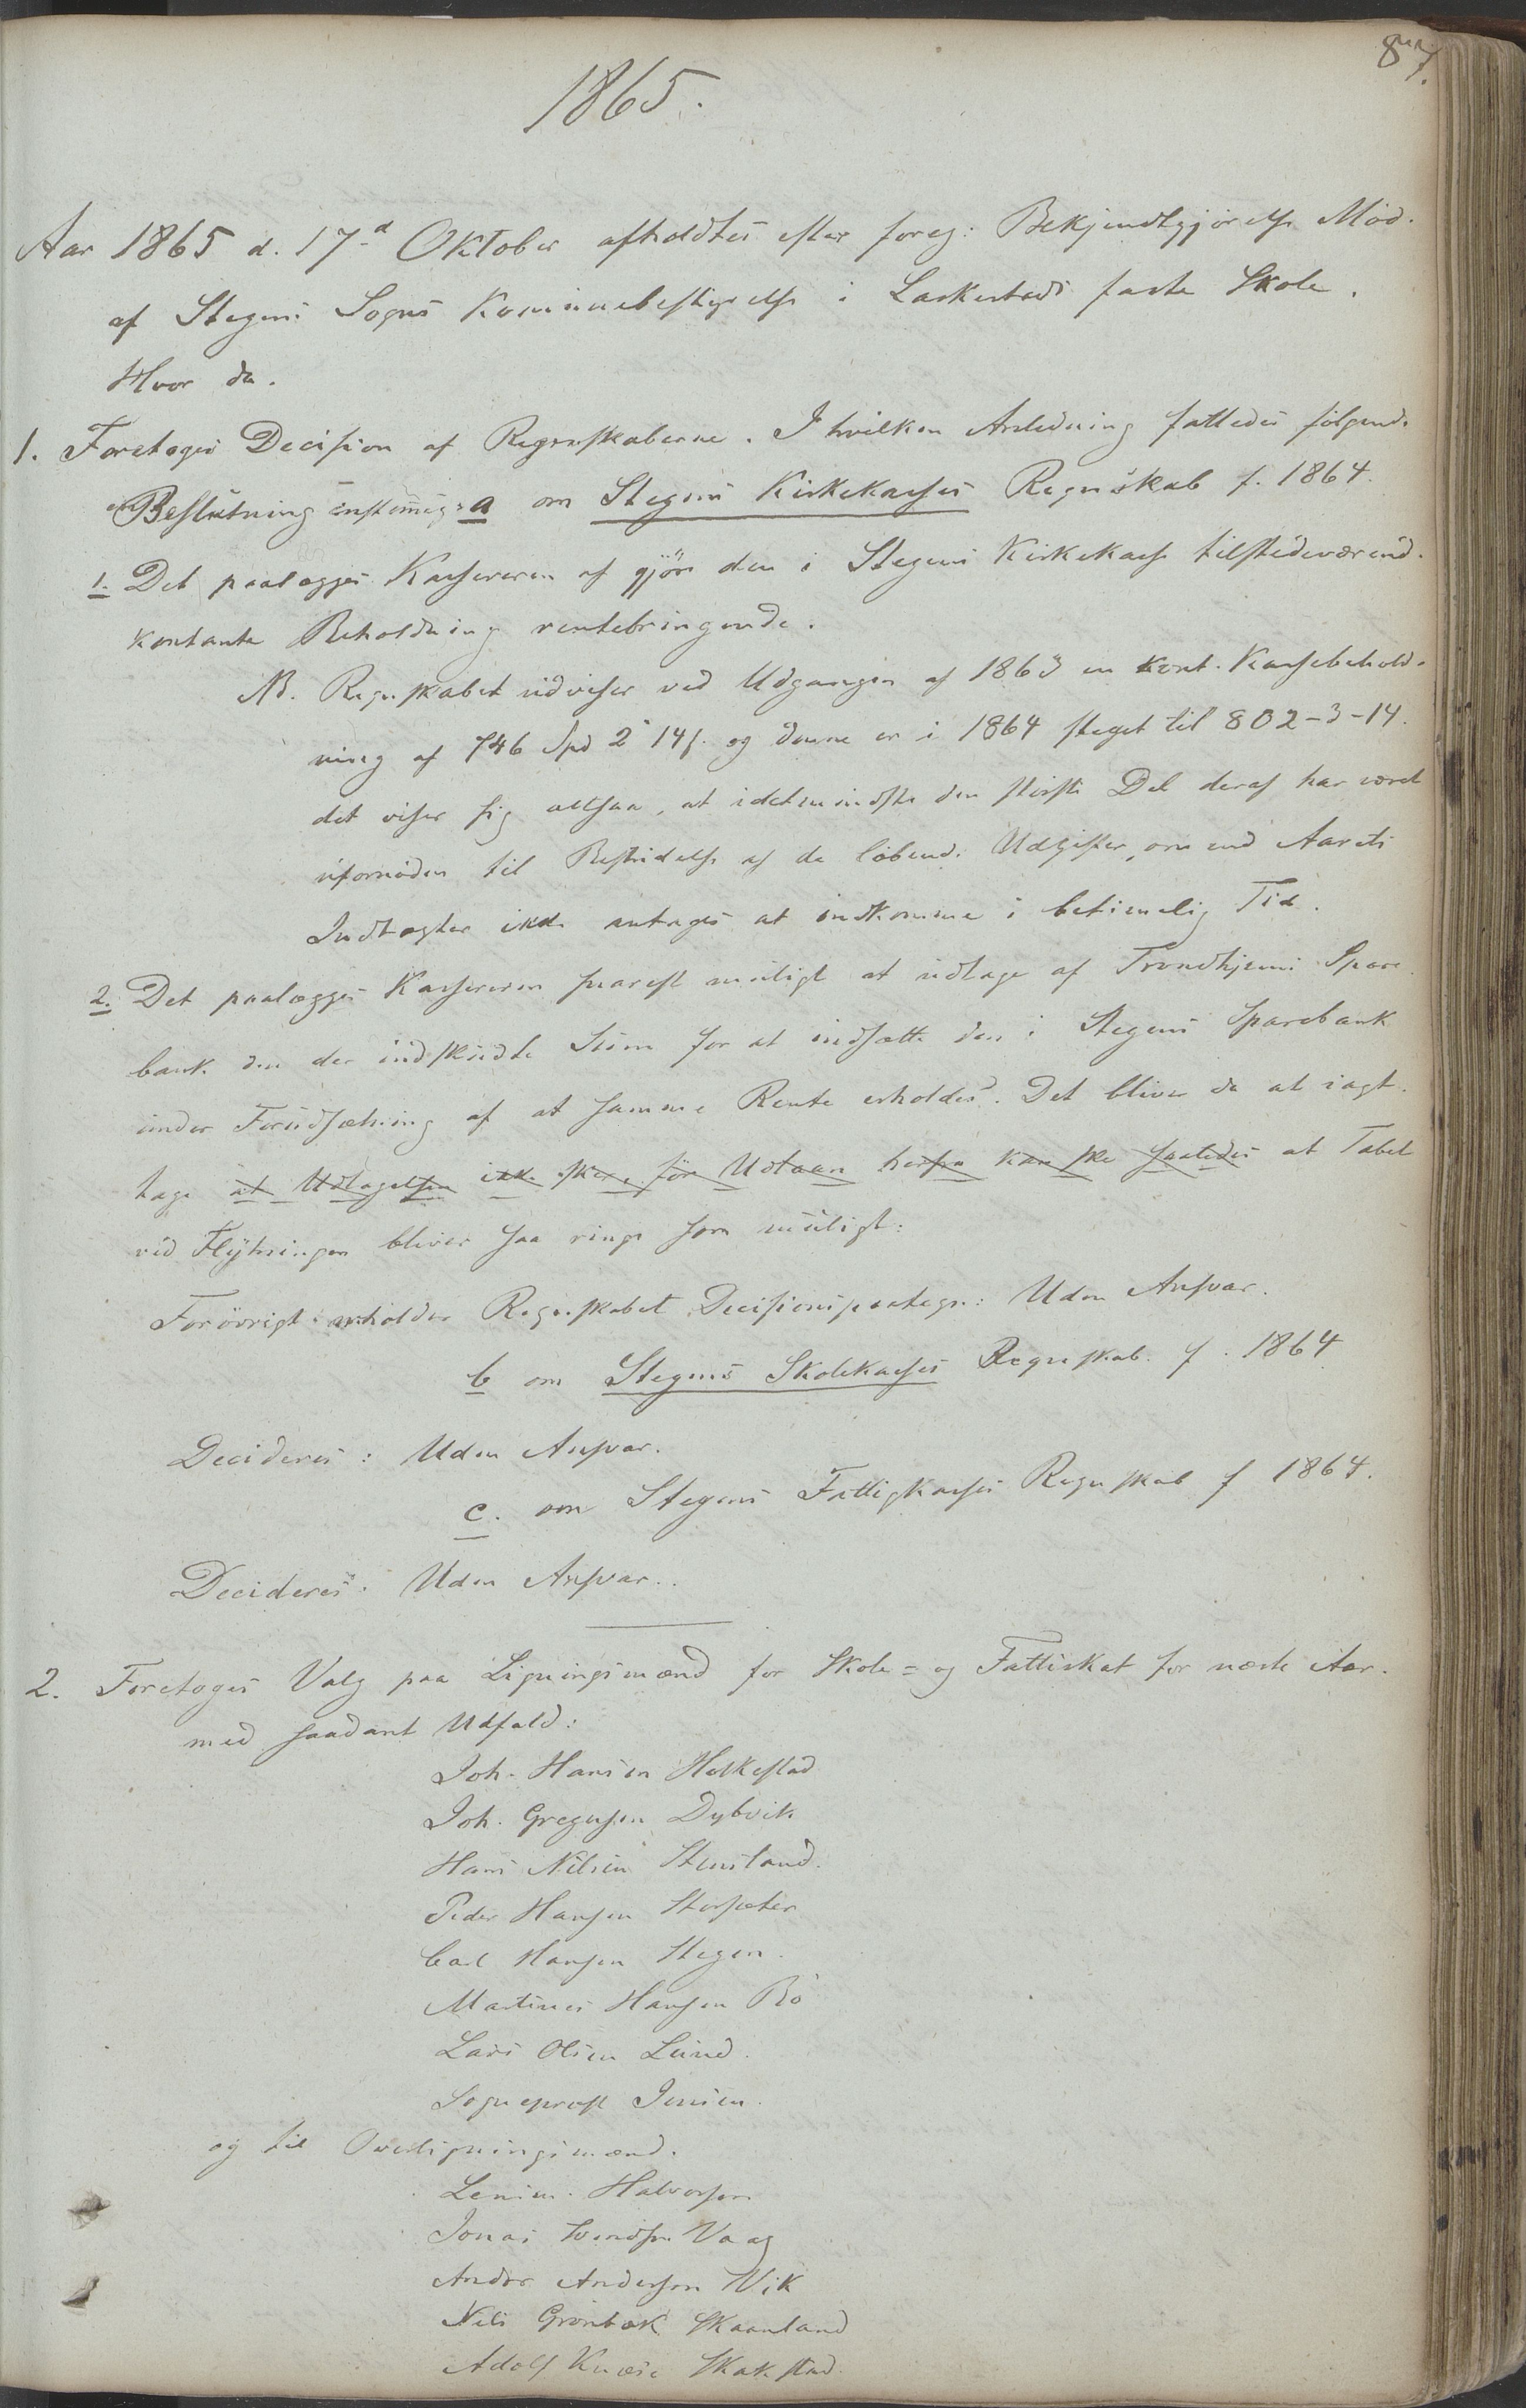 87.
1865.
Aar 1865 d. 17d Oktober afholdtes efter foreg: Bekjendtgjörelse Möd.
af Stegens Sogns Kommunebestyrelse i Laskestads faste Skole.
Hvor da.
1. Foretoges Decision af Regnskaberne. I hvilken Anledning fattedes fölgend.
Beslutning enstemmig: a om Stegens Kirkekasses Regnskab f. 1864.
1. Det paalægges Kassereren at gjöre den i Stegens Kirkekasse tilstedeværend.
kontante Beholdning rentebringende.
NB. Regnskabet udviser ved Udgangen af 1863 en kont. Kassebehold-
ning af 746 Spd 2 14s. og denne er i 1864 steget til 802-3-14.
det viser sig altsaa, at idetmindste den störste Del deraf har været
ufornöden til Bestridelse af de löbend. Udgifter, om end Aarets
Indtægter ikke antages at indkomme i betimelig Tid.
2. Det paalægges Kassereren snarest muligt at udtage af Trondhjems Spare
bank den der indskudte Sum for at indsætte den i Stegens Sparebank
under Forudsætning af at samme Rente erholdes. Det bliver da at iagt-
tage at Udtagelsen ikke sker, för Udlaan herfra kan ske saaledes at Tabet
ved Flytningen bliver saa ringe som muligt:
Forövrigt erholder Regnskabet Decisionspaategn: Uden Ansvar.
b om Stegens Skolekasses Regnskab. f. 1864
Decideres: Uden Ansvar.
c. om Stegens Fattigkasses Regnskab f 1864.
Decideres: Uden Ansvar..
2. Foretoges Valg paa Ligningsmænd for Skole= og Fattiskat for næste Aar.
med saadant Udfald:
Joh. Hansen Helkestad
Joh. Gregusen Dybvik
Hans Nilsen Stensland.
Peder Hansen Storsæter
Carl Hansen Stegen.
Martines Hansen Bö
Lars Olsen Lund.
Sogneprest Jensen.
og til Overligningsmænd.
Halvorsen
Jonas Svendsen Vaag
Anders Andersen Vik
Nils Grönbæk Skaanland
Adolf Knæse Skakstad.